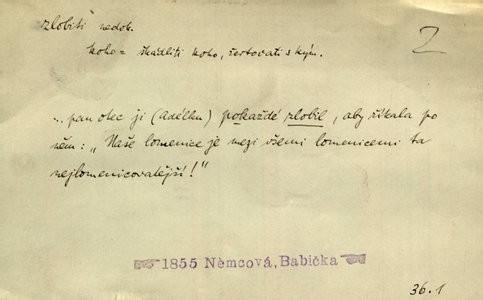 zlobiti nedok.
Z
koho = škádliti koho, žertovati s kým.
... pan otec ji (Adélku) pokaždé zlobil, aby říkala po
něm: „Naše lomenice je mezi všemi lomenicemi ta
nejlomenicovatější!"
1855 Němcová, Babička
36.1